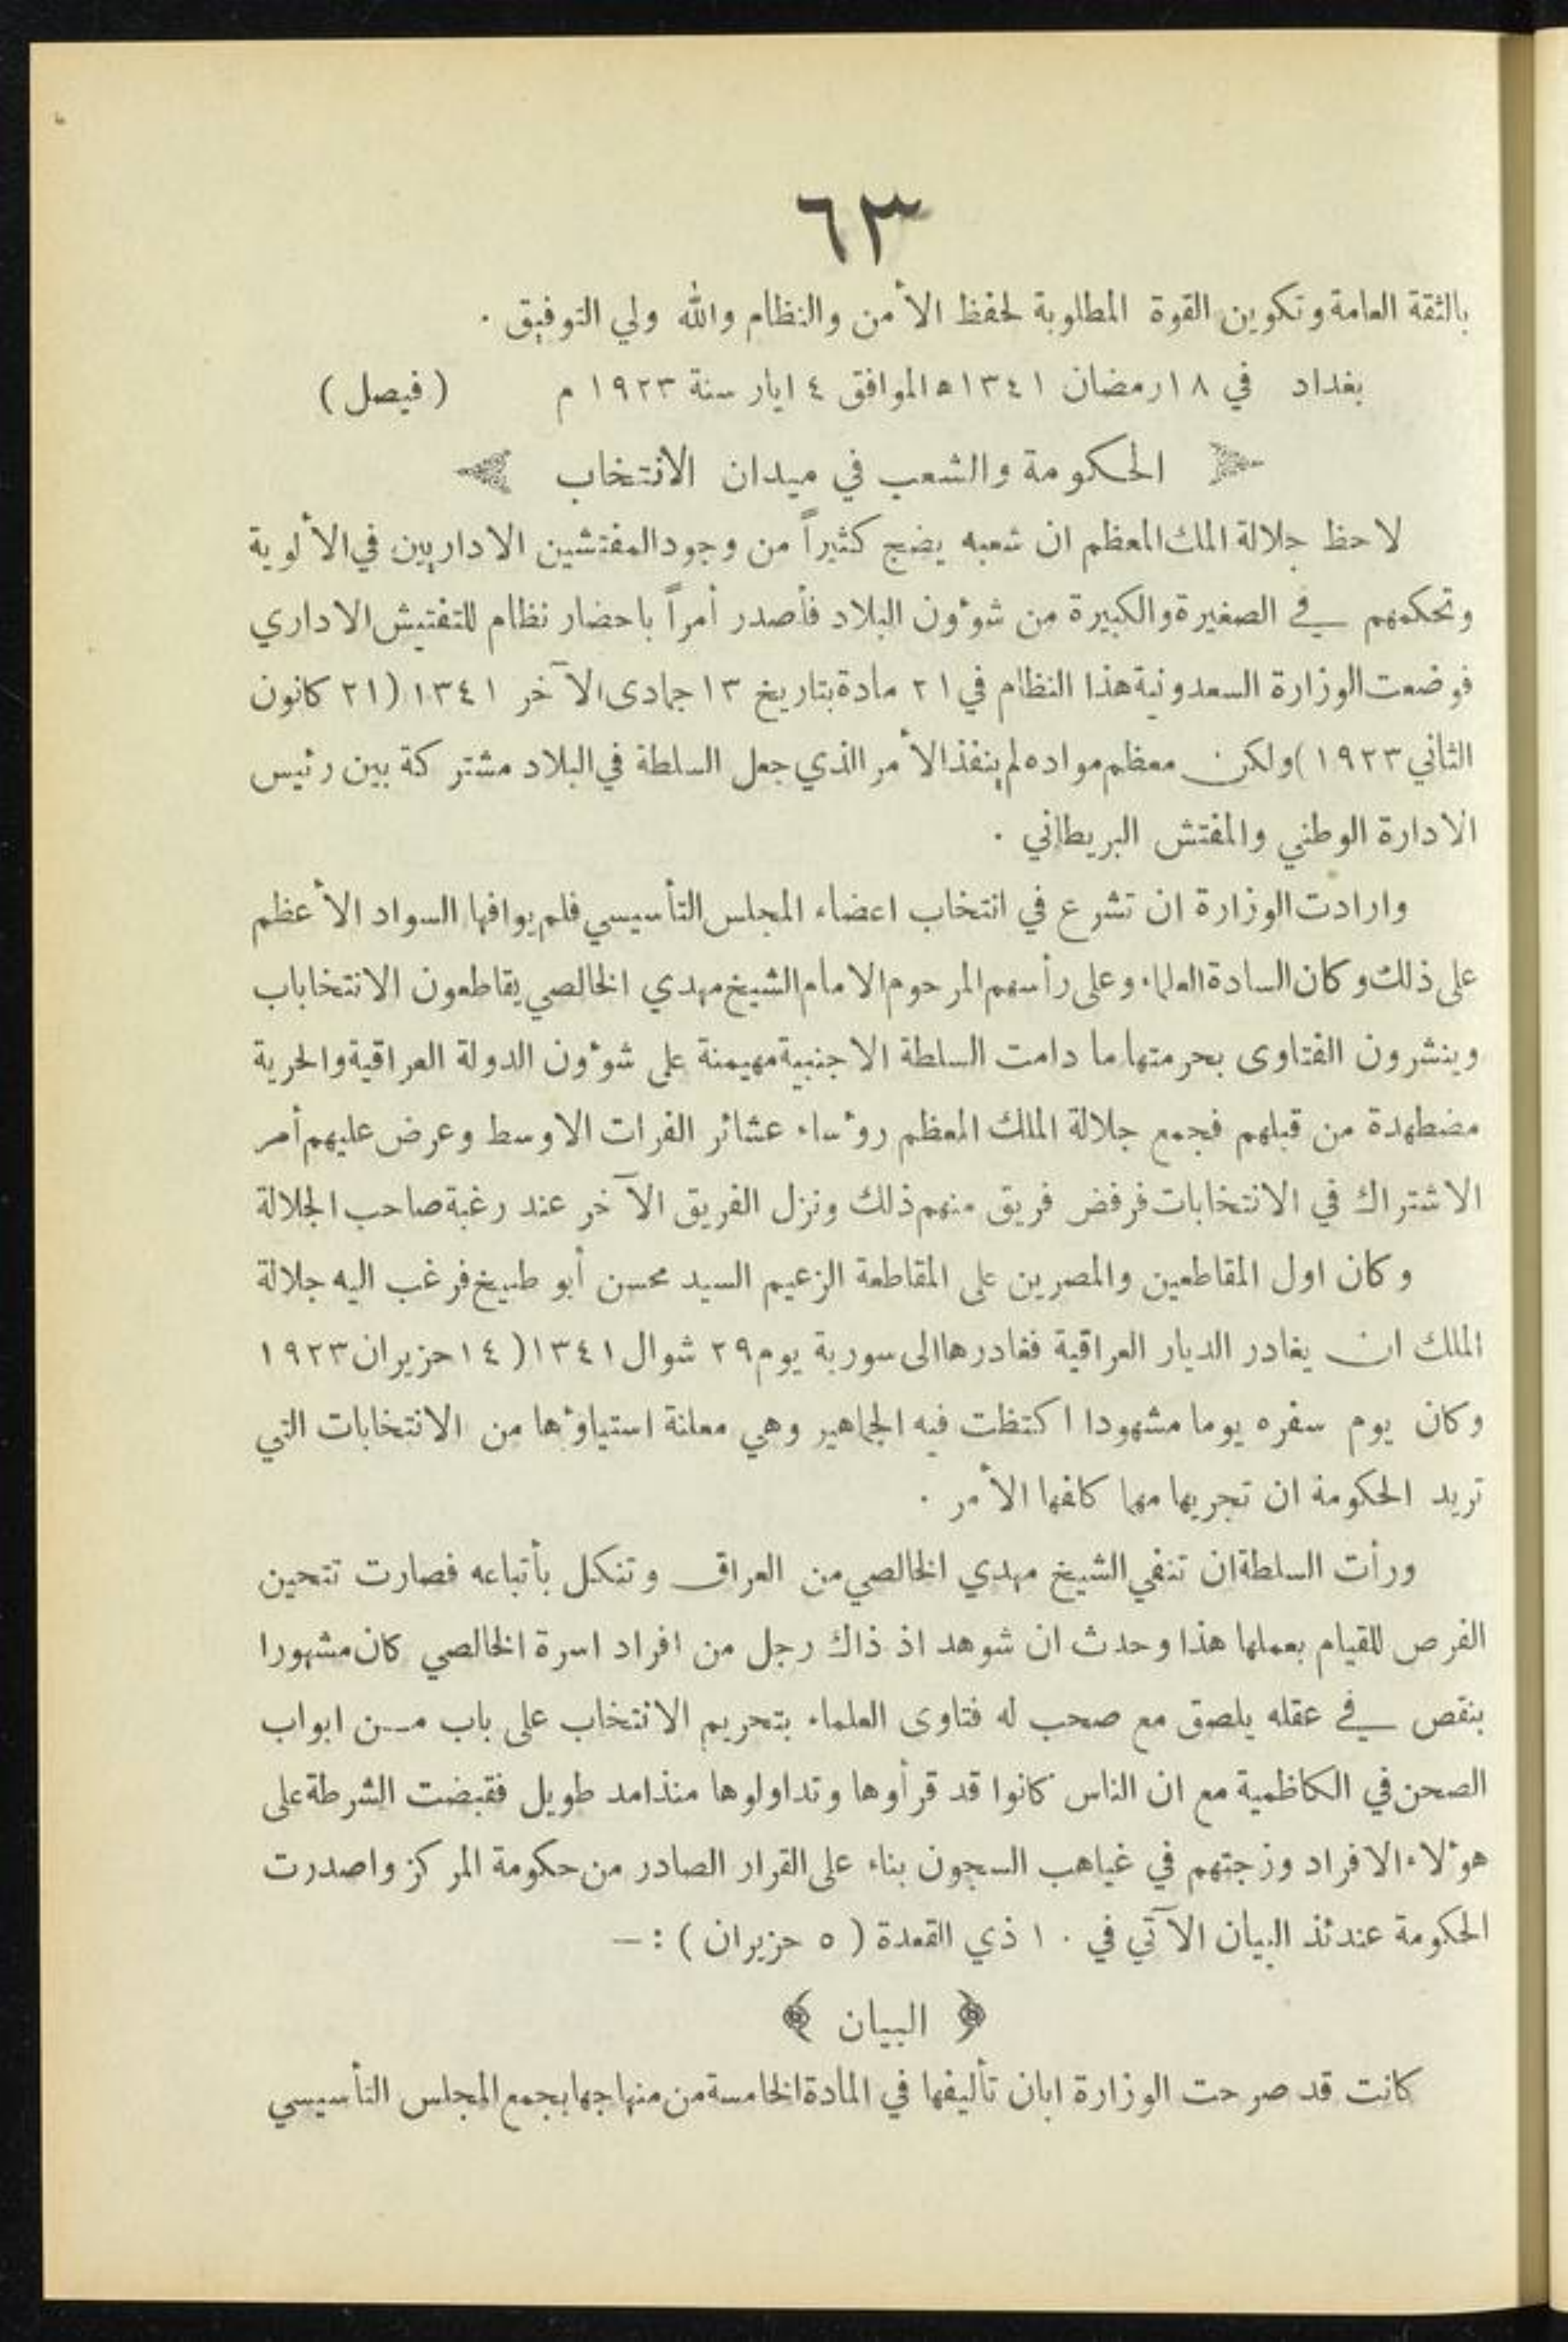 ٦٣
بالثقة العامة وتكوين القوة المطلوبة لحفظ الأمن والنظام والله ولي التوفيق ٠
بغداد في ١٨ رمضان ١٣٤١ ه الموافق ٤ ايار سنة ١٩٢٣ م ( فيصل )
الحكومة والشعب في ميدان الانتخاب
لاحظ جلالة الملك المعظم ان شعبه يضج كثيراً من وجود المفتشين الاداريين في الألوية
وتحكمهم في الصغيرة والكبيرة من شوٴون البلاد فأصدر أمراً باحضار نظام للتفتيش الاداري
فوضعت الوزارة السعدونية هذا النظام في ٢١ مادة بتاريخ ١٣ جمادى الآخر ١٣٤١ (٢١ كانون
الثاني ١٩٢٣ ) ولكن معظم مواده لم ينفذ الأمر الذي جعل السلطة في البلاد مشتركة بين رئيس
الادارة الوطني والمفتش البريطاني ٠
وارادت الوزارة ان تشرع في انتخاب اعضاء المجلس التأسيسي فلم يوافها السواد الأعظم
على ذلك وكان السادة العلماء وعلى رأسهم المرحوم الامام الشيخ مهدي الخالصي يقاطعون الانتخاباب
وينشرون الفتاوى بحرمتها ما دامت السلطة الاجنبية مهيمنة على شوٴون الدولة العراقية والحرية
مضطهدة من قبلهم فجمع جلالة الملك المعظم روٴساء عشائر الفرات الاوسط وعرض عليهم أمر
الاشتراك في الانتخابات فرفض فريق منهم ذلك ونزل الفريق الآخر عند رغبة صاحب الجلالة
وكان اول المقاطعين والمصرين على المقاطعة الزعيم السيد محسن أبو طبيخ فرغب اليه جلالة
الملك ان يغادر الديار العراقية فغادرها الى سورية يوم ٢٩ شوال ١٣٤١ ( ١٤ حزيران ١٩٢٣
وكان يوم سفره يوما مشهودا اكتظت فيه الجماهير وهي معلنة استياوٴها من الانتخابات التي
تريد الحكومة ان تجريها مهما كلفها الأمر ٠
ورأت السلطة ان تنفي الشيخ مهدي الخالصي من العراق وتنكل بأتباعه فصارت تتحين
الفرص للقيام بعملها هذا وحدث ان شوهد اذ ذاك رجل من افراد اسرة الخالصي كان مشهورا
بنقص في عقله يلصق مع صحب له فتاوى العلماء بتحريم الانتخاب على باب من ابواب
الصحن في الكاظمية مع ان الناس كانوا قد قرأوها وتداولوها منذ امد طويل فقبضت الشرطة على
هوٴلاء الافراد وزجتهم في غياهب السجون بناء على القرار الصادر من حكومة المركز واصدرت
الحكومة عندئذ البيان الآتي في ١٠ ذي القعدة ( ٥ حزيران ) : —
﴿ البيان ﴾
كانت قد صرحت الوزارة ابان تأليفها في المادة الخامسة من منهاجها بجمع المجلس التأسيسي